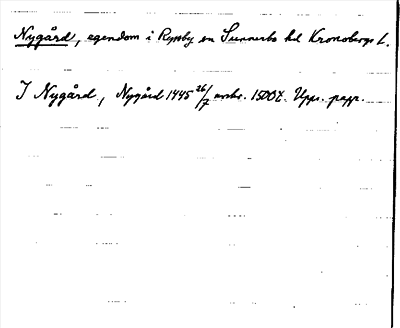 Nygård, egendom i Ryssby sn Sunnerbo hd Kronobergs l.
I Nygård, Nygård 1445 26/7 avskr. 1500t. Upps. papp.